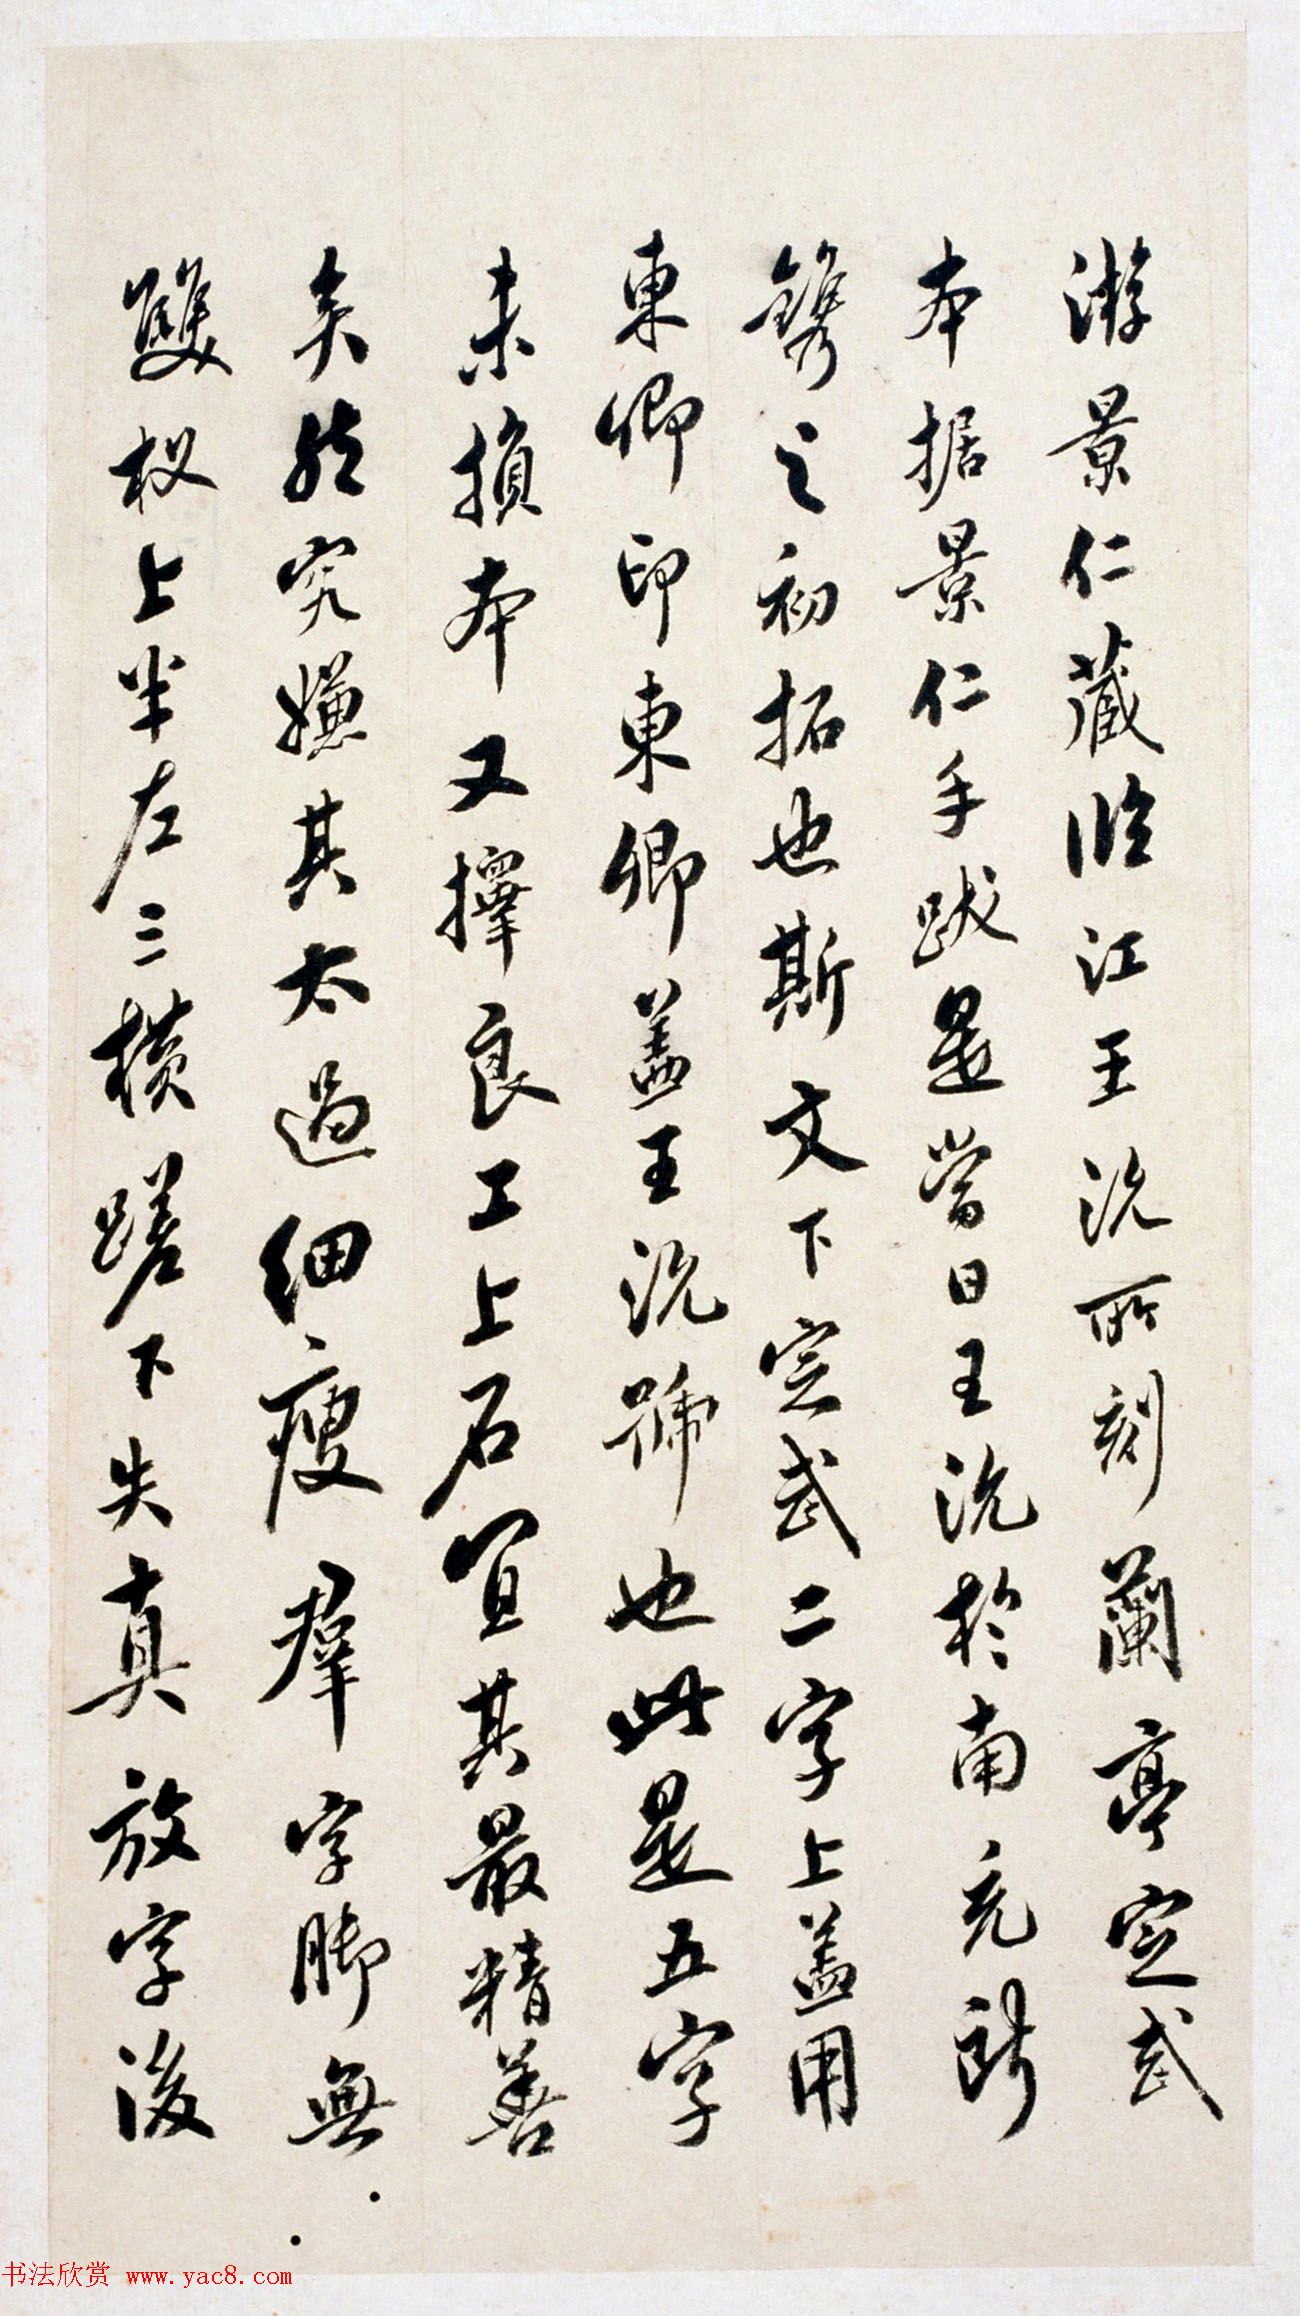 游景仁藏臨江王沇所刻蘭亭定武
本据景仁手跋是當日王沇於南充所
鐫之初拓也斯文下定武二字上盖用
東卿印東卿盖王沇號也此是五字
未損本又擇良工上石宜其最精善
矣然究嫌其太過細瘦羣字脚無
雙杈上半左三橫蹉下失真放字後
书法欣赏 www.yac8.com